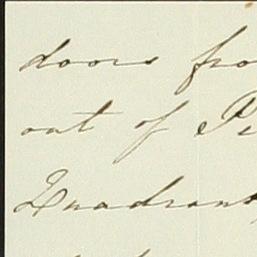 doors fro
out of Pi
Quadrant